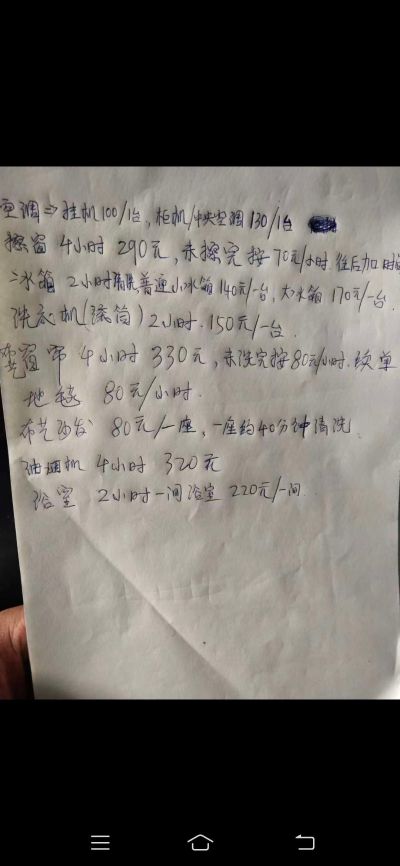 空调⇒挂机100/1台，柜机/中央空调130/1台
擦窗 4小时 290元，未擦完按70元/小时.往后加时
冰箱 2小时 普通小冰箱140元/一台，大冰箱170元/一台.
洗衣机(滚筒)2小时.150元/一台.
窗帘 4小时 330元，未洗完按80元/小时.续单
地毯 80元/小时.
布艺沙发 80元/一座，一座约40分钟清洗.
油烟机 4小时 320元
浴室 2小时一间浴室 220元/一间.